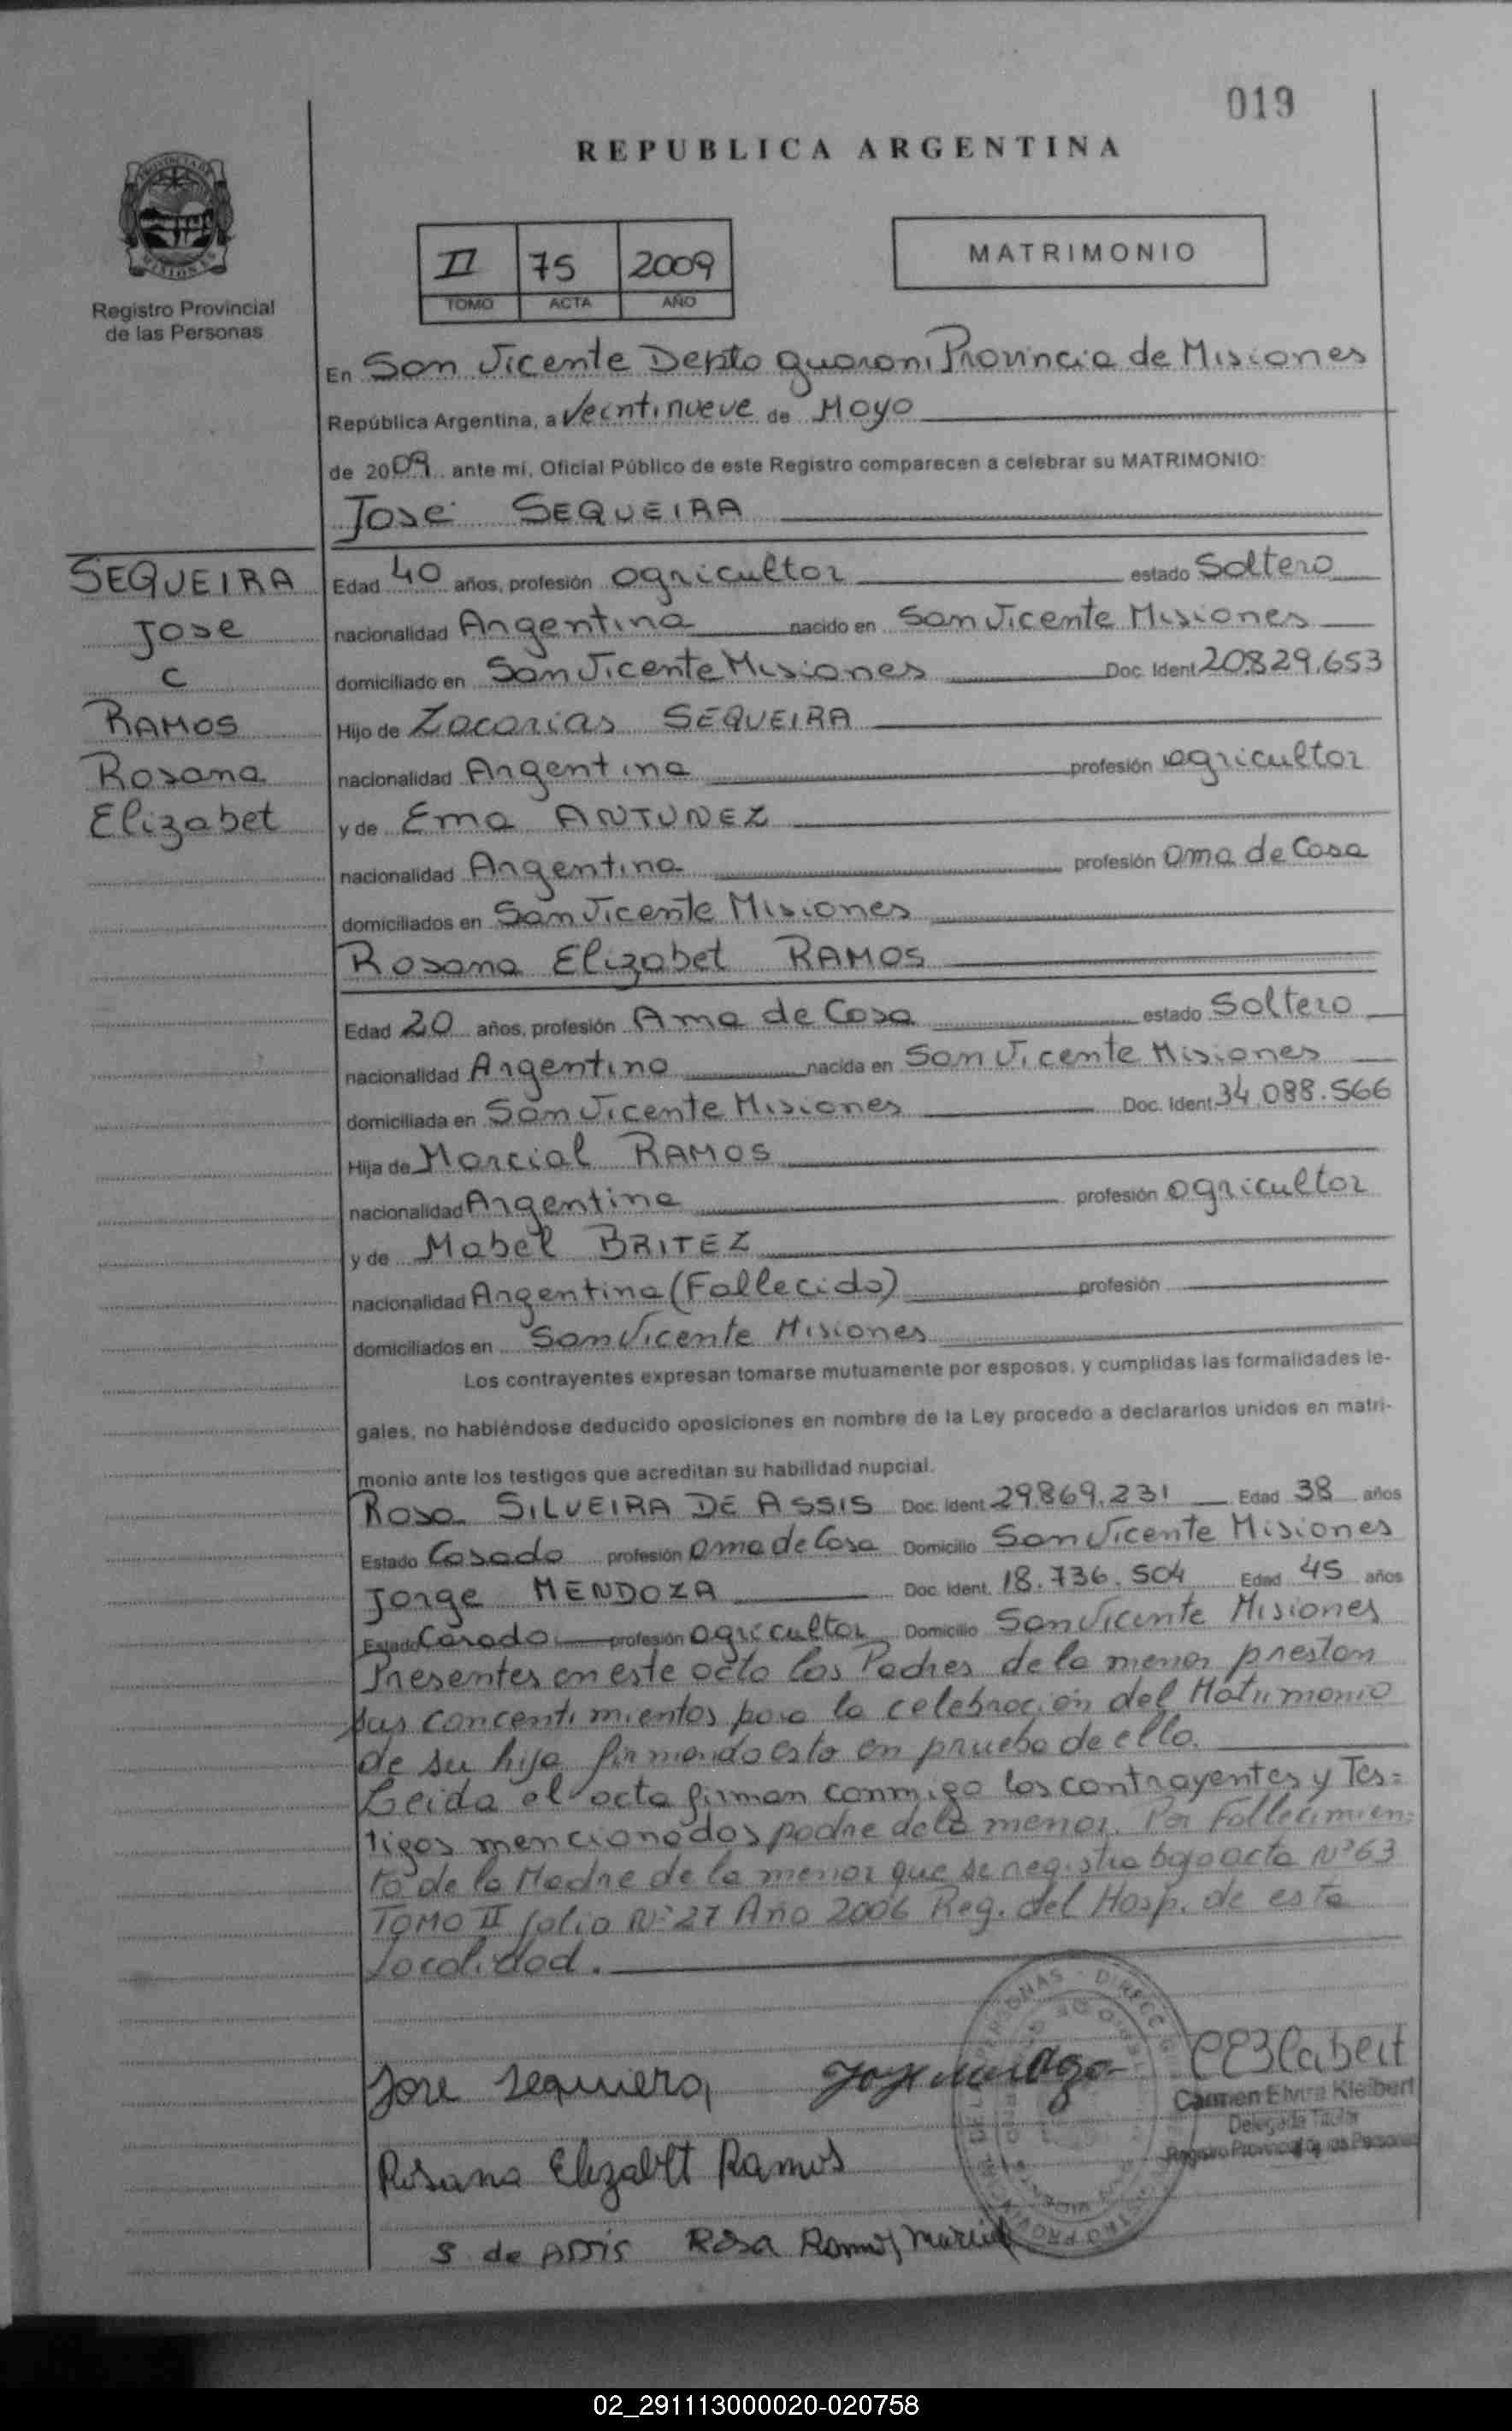 019
REPUBLICA ARGENTINA
Registro Provincial
de las Personas
II 75 2009
TOMO ACTA AÑO
MATRIMONIO
En San Vicente Depto guarani Provincia de Misiones
República Argentina, a Veintinueve de Mayo
de 2009 ante mí, Oficial Público de este Registro comparecen a celebrar su MATRIMONIO:
Jose SEQUEIRA
SEQUEIRA
Jose
C
RAMOS
Rosana
Elizabet
Edad 40 años, profesión agricultor estado Soltero
nacionalidad Argentina nacido en San Vicente Misiones
domiciliado en San Vicente Misiones Doc. Ident 20829.653
Hijo de Zacarias SEQUEIRA
nacionalidad Argentina profesión agricultor
y de Ema ANTUNEZ
nacionalidad Argentina profesión ama de Casa
domiciliados en San Vicente Misiones
Rosana Elizabet RAMOS
Edad 20 años, profesión Ama de Casa estado Soltero
nacionalidad Argentina nacida en San Vicente Misiones
domiciliada en San Vicente Misiones Doc. Ident 34.088.566
Hija de Marcial RAMOS
nacionalidad Argentina profesión agricultor
y de Mabel BRITEZ
nacionalidad Argentina (Fallecida) profesión
domiciliados en San Vicente Misiones
Los contrayentes expresan tomarse mutuamente por esposos, y cumplidas las formalidades le-
gales, no habiéndose deducido oposiciones en nombre de la Ley procedo a declararlos unidos en matri-
monio ante los testigos que acreditan su habilidad nupcial.
Rosa SILVEIRA DE ASSIS Doc. Ident 29.869.231 Edad 38 años
Estado Casada profesión ama de Casa Domicilio San Vicente Misiones
Jorge MENDOZA Doc. Ident. 18.736.504 Edad 45 años
Estado Casado profesión agricultor Domicilio San Vicente Misiones
Presentes en este acto los Padres de la menor prestan
sus concentimientos para la celebración del Matrimonio
de su hija firmando esta en prueba de ello.
Leida el acta firman conmigo los contrayentes y Tes=
tigos mencionados padre de la menor. Por Fallecimien=
to de la Madre de la menor que se registra bajo acta Nº 63
TOMO II folio Nº 27 Año 2006 Reg. del Hosp. de esta
localidad.
Jose Sequiera
Carmen Elvira Kleibert
Delegada Titular
Registro Provincial de las Personas
Rosana Elizabet Ramos
S de Assis Rosa Ramos Marcial
02_291113000020-020758